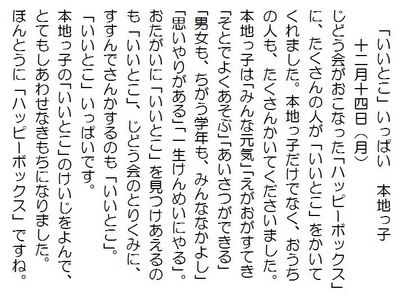 「いいとこ」いっぱい　本地っ子
十二月十四日（月）
じどう会がおこなった「ハッピーボックス」
に、たくさんの人が「いいとこ」をかいて
くれました。本地っ子だけでなく、おうち
の人も、たくさんかいてくださいました。
本地っ子は「みんな元気」「えがおがすてき」
「そとでよくあそぶ」「あいさつができる」
「男女も、ちがう学年も、みんななかよし」
「思いやりがある」「一生けんめいにやる」。
おたがいに「いいとこ」を見つけあえるの
も「いいとこ」、じどう会のとりくみに、
すすんでさんかするのも「いいとこ」。
「いいとこ」いっぱいです。
本地っ子の「いいとこ」のけいじをよんで、
とてもしあわせなきもちになりました。
ほんとうに「ハッピーボックス」ですね。